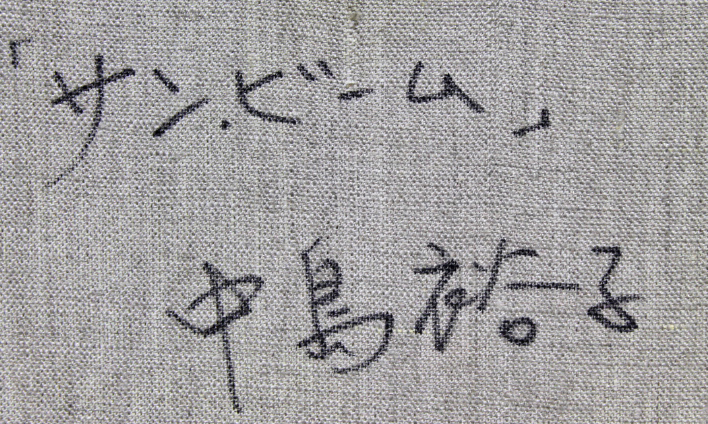 「サン・ビーム」
中島裕子